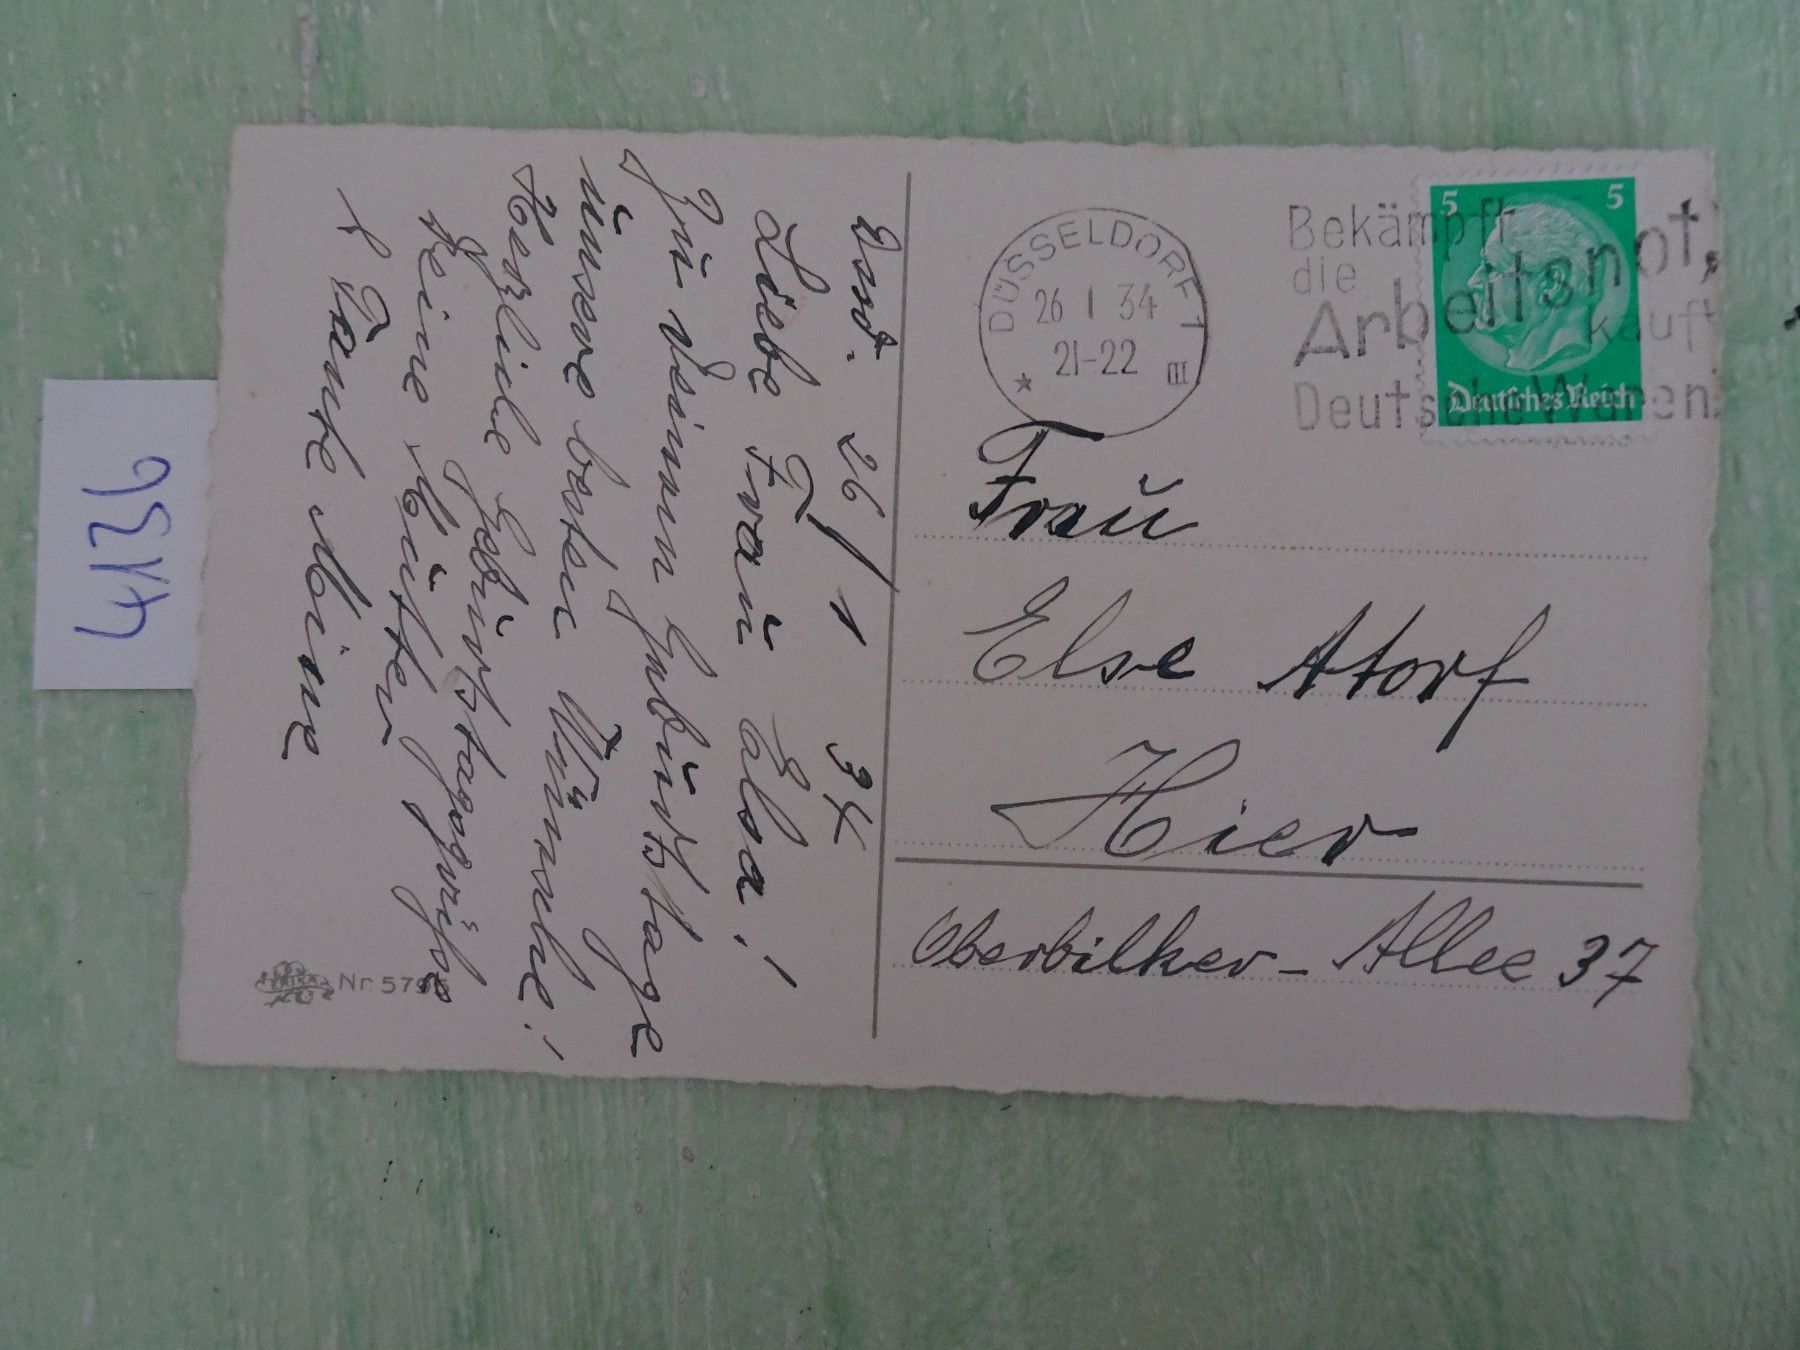 DÜSSELDORF 1
26 1 34
21-22
III
Bekämpft
die
Arbeitsnot,
kauft
Deutsche Waren
5 5
Deutsches Reich
Frau
Else Atorf
Hier
Oberbilker-Allee 37
26/1 34
Liebe Frau Elsa!
Zu Deinem Geburtstage
unsere besten Wünsche!
Herzliche Geburtstagsgrüße
Deine Mutter
& Tante Mine
Nr 579
4136